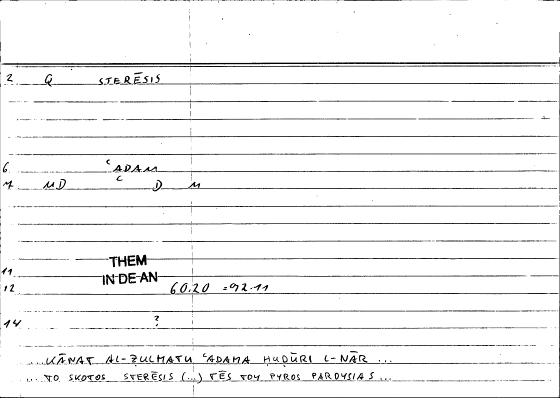 2 Q STERĒSIS
6 ʿADAM
7 MD ʿ D M
11 THEM
IN DE AN
12 60.20 =92.11
14 ?
... KĀNAT AL-ẒULMATU ʿADAMA ḤUḌŪRI L-NĀR ...
... TO SKOTOS STERĒSIS (...) TĒS TOY PYROS PAROYSIAS ...